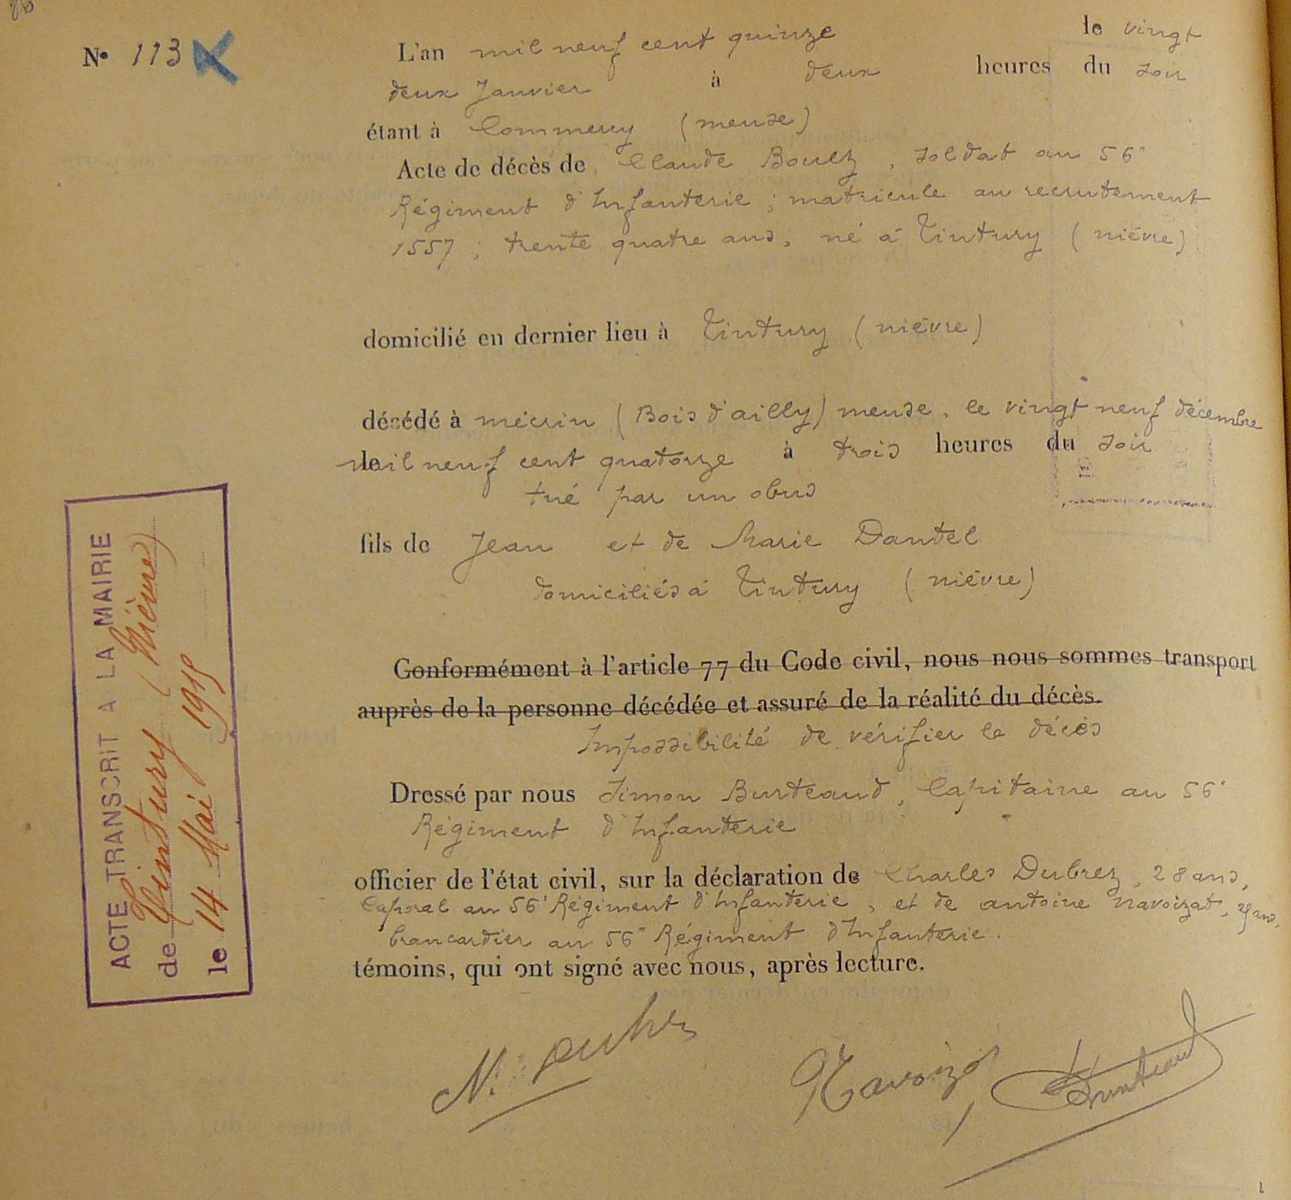 N° 113
L'an mil neuf cent quinze le vingt
deux Janvier à deux heures du soir
étant à Commercy (meuse)
Acte de décès de Claude Boulz, soldat au 56e
Régiment d'Infanterie ; matricule au recrutement
1557 ; trente quatre ans, né à Tintury (nièvre)
domicilié en dernier lieu à Tintury (nièvre)
décédé à mécrin (Bois d'ailly) meuse, le vingt neuf décembre
mil neuf cent quatorze à trois heures du soir
tué par un obus
fils de Jean et de Marie Dantel
domiciliés à Tintury (nièvre)
Conformément à l'article 77 du Code civil, nous nous sommes transport
auprès de la personne décédée et assuré de la réalité du décès.
Impossibilité de vérifier le décès
Dressé par nous Simon Burteaud, Capitaine au 56e
Régiment d'Infanterie
officier de l'état civil, sur la déclaration de Charles Dubrez, 28 ans,
Caporal au 56e Régiment d'Infanterie, et de antoine navoizat, ans,
brancardier au 56e Régiment d'Infanterie.
témoins, qui ont signé avec nous, après lecture.
ACTE TRANSCRIT A LA MAIRIE
de Tintury (Nièvre)
le 14 Mai 1915